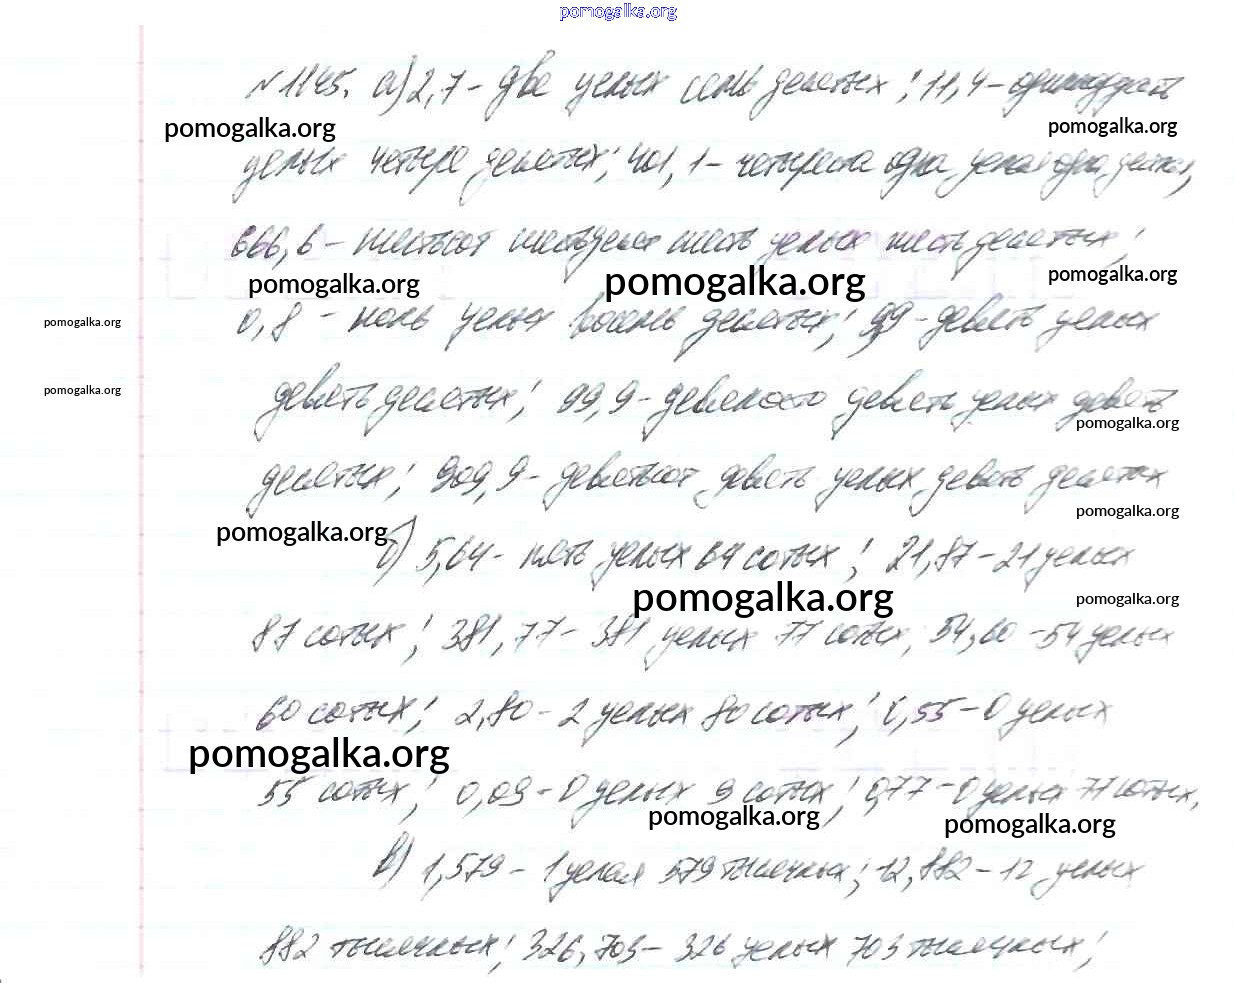 pomogalka.org
№1145. а) 2,7 - две целых семь десятых; 11,4 - одиннадцать
pomogalka.org pomogalka.org
целых четыре десятых; 401,1 - четыреста одна целая одна десятая,
666,6 - шестьсот шестьдесят шесть целых шесть десятых;
pomogalka.org pomogalka.org pomogalka.org
0,8 - ноль целых восемь десятых; 9,9 - девять целых
pomogalka.org
девять десятых; 99,9 - девяносто девять целых девять
pomogalka.org
pomogalka.org
десятых; 909,9 - девятьсот девять целых девять десятых
pomogalka.org
pomogalka.org
б) 5,64 - пять целых 64 сотых; 21,87 - 21 целых
pomogalka.org pomogalka.org
87 сотых; 381,77 - 381 целых 77 сотых, 54,60 - 54 целых
60 сотых; 2,80 - 2 целых 80 сотых; 0,55 - 0 целых
pomogalka.org
55 сотых; 0,09 - 0 целых 9 сотых; 0,77 - 0 целых 77 сотых,
pomogalka.org pomogalka.org
в) 1,579 - 1 целая 579 тысячных; 12,882 - 12 целых
882 тысячных; 326,703 - 326 целых 703 тысячных;